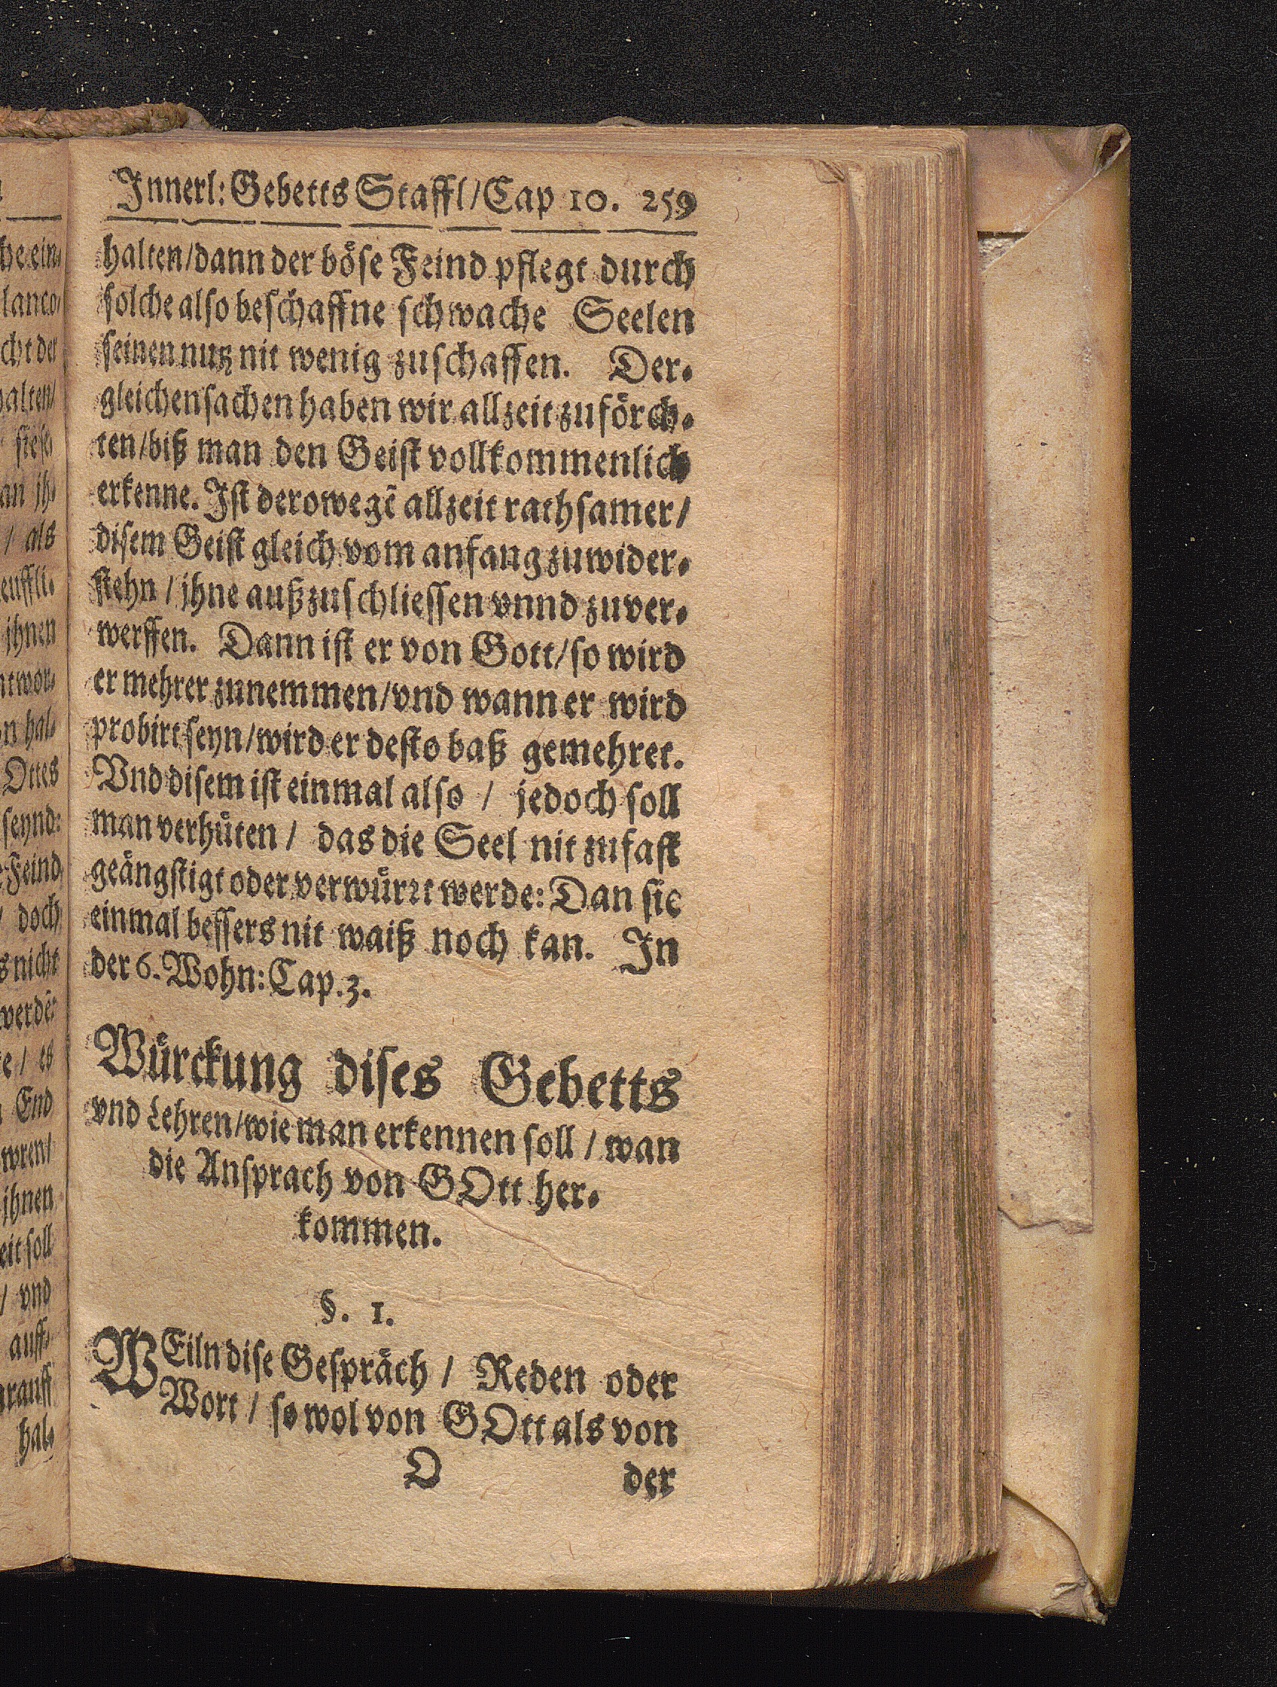 Innerl: Gebetts Staffl / Cap 10. 259
halten / dann der böse Feind pflegt durch
solche also beschaffne schwache Seelen
seinen nutz nit wenig zuschaffen. Der-
gleichen sachen haben wir allzeit zuförch-
ten / biß man den Geist vollkommenlich
erkenne. Ist derowegẽ allzeit rathsamer /
disem Geist gleich vom anfang zuwider-
stehn / jhne außzuschliessen vnnd zuver-
werffen. Dann ist er von Gott / so wird
er mehrer zunemmen / vnd wann er wird
probirt seyn / wird er desto baß gemehret.
Vnd disem ist einmal also / jedoch soll
man verhüten / das die Seel nit zufast
geängstigt oder verwürrt werde: Dan sie
einmal bessers nit waiß noch kan. In
der 6. Wohn: Cap. 3.
Würckung dises Gebetts
vnd Lehren / wie man erkennen soll / wan
die Ansprach von GOtt her-
kommen.
§. 1.
WEiln dise Gespräch / Reden oder
Wort / so wol von GOtt als von
O der